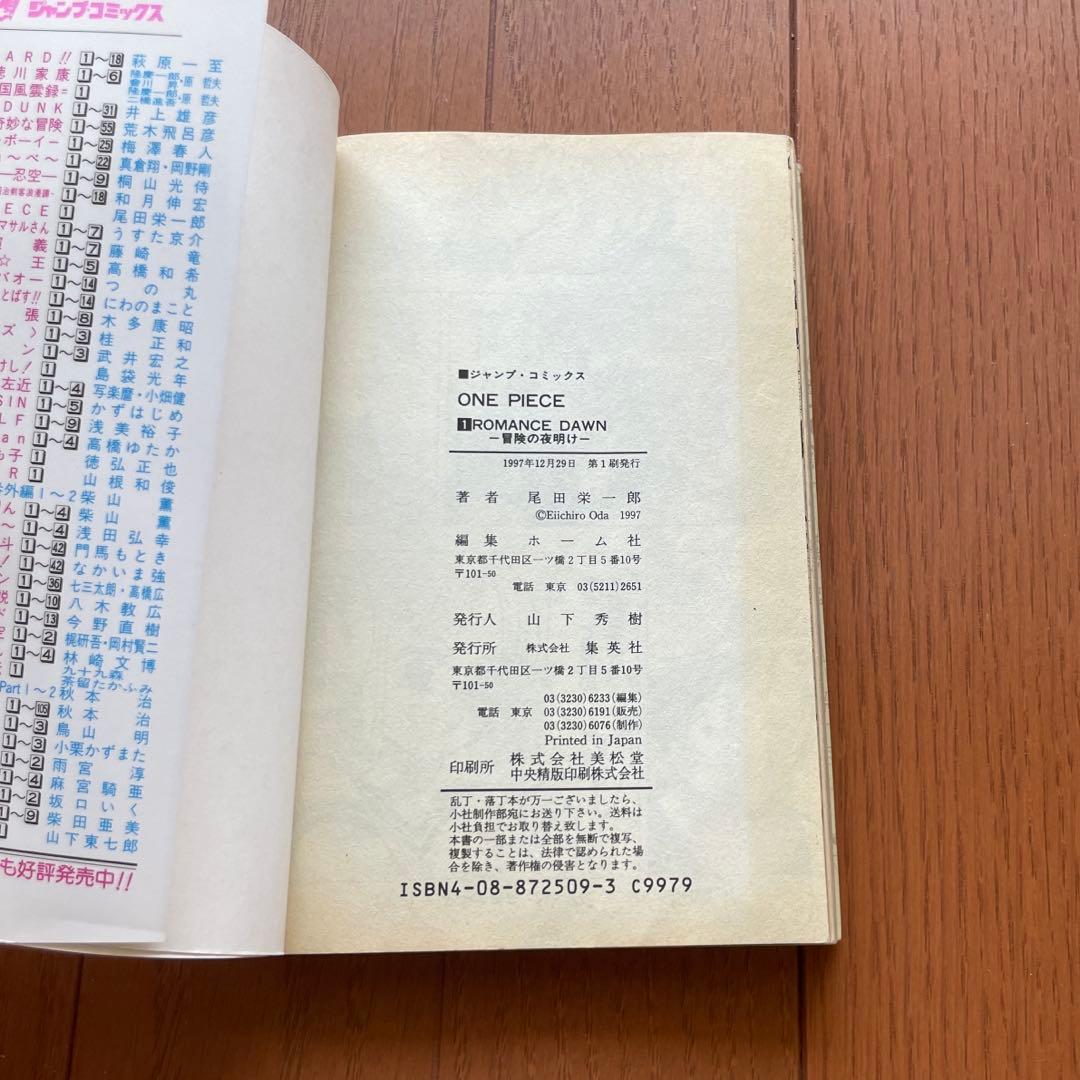 ジャンプ・コミックス
ARD!! 1〜18 萩原一至
徳川家康 1〜6 隆慶一郎・原哲夫
國風雲録= 1
DUNK 1〜31 井上雄彦
奇妙な冒険 1〜55 荒木飛呂彦
ボーイー 1〜25 梅澤春人
〜べ〜 1〜22 真倉翔・岡野剛
忍空― 1〜9 桐山光侍
治剣客浪漫譚- 1〜18 和月伸宏
ECE 1 尾田栄一郎
マサルさん 1〜7 うすた京介
義 1〜7 藤崎竜
☆王 1〜5 高橋和希
バオー 1〜14 つの丸
とばす!! 1〜14 にわのまこと
張 1〜8 木多康昭
ズ〉 1〜3 桂正和
ン 1〜3 武井宏之
けし! 1 島袋光年
左近 1〜4 写楽麿・小畑健
SIN 1〜5 かずはじめ
LF 1〜9 浅美裕子
an 1〜4 高橋ゆたか
も子 1 徳弘正也
R 1 山根和俊
外編1〜2 柴山薫
ん 1〜4 柴山薫
〜 1〜4 浅田弘幸
斗 1〜42 門馬もとき
! 1〜42 なかいま強
ン 1〜36 七三太朗・高橋広
説 1〜10 八木教広
ド 1〜13 今野直樹
1〜2 梶研吾・岡村賢二
1〜4 林崎文博
1 九十九森
茶留たかふみ
Part1〜2 秋本治
1〜105 秋本治
1〜3 鳥山明
1〜3 小栗かずまた
1〜2 雨宮淳
1〜4 麻宮騎亜
1〜2 坂口いく
1〜9 柴田亜美
山下東七郎
も好評発売中!!
■ジャンプ・コミックス
ONE PIECE
1 ROMANCE DAWN
―冒険の夜明け―
1997年12月29日 第1刷発行
著者 尾田栄一郎
©Eiichiro Oda 1997
編集 ホーム社
東京都千代田区一ツ橋2丁目5番10号
〒101-50
電話 東京 03(5211)2651
発行人 山下秀樹
発行所 株式会社 集英社
東京都千代田区一ツ橋2丁目5番10号
〒101-50
03(3230)6233(編集)
電話 東京 03(3230)6191(販売)
03(3230)6076(制作)
Printed in Japan
印刷所 株式会社美松堂
中央精版印刷株式会社
乱丁・落丁本が万一ございましたら、
小社制作部宛にお送り下さい。送料は
小社負担でお取り替え致します。
本書の一部または全部を無断で複写、
複製することは、法律で認められた場
合を除き、著作権の侵害となります。
ISBN4-08-872509-3 C9979